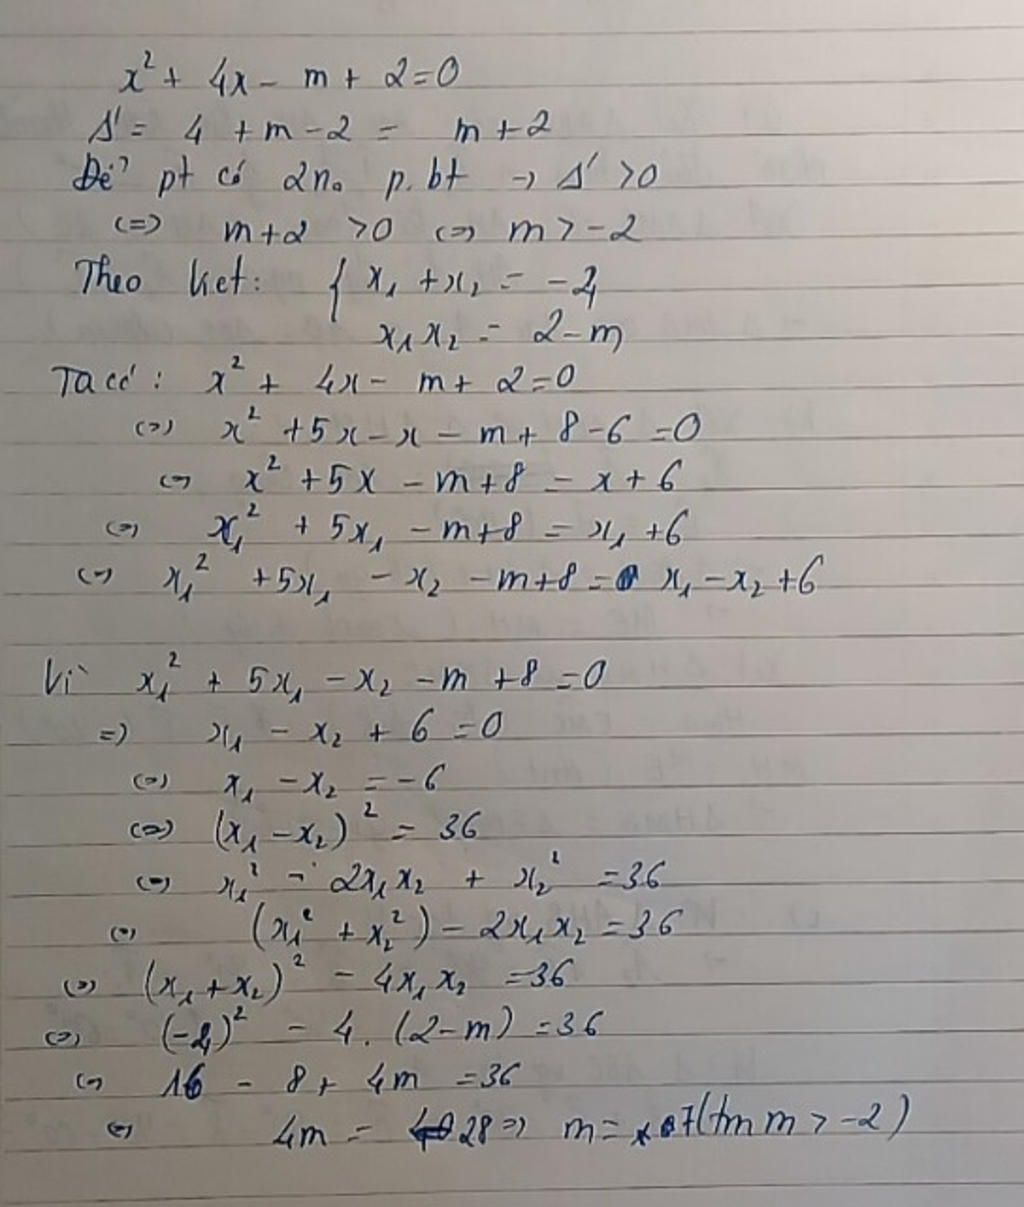 x² + 4x - m + 2 = 0
Δ' = 4 + m - 2 = m + 2
Để pt có 2 no p.bt → Δ' > 0
(=) m + 2 > 0 (=) m > -2
Theo Viet: { x₁ + x₂ = -4
x₁x₂ = 2 - m
Ta có: x² + 4x - m + 2 = 0
(=) x² + 5x - x - m + 8 - 6 = 0
(=) x² + 5x - m + 8 = x + 6
(=) x₁² + 5x₁ - m + 8 = x₁ + 6
(=) x₁² + 5x₁ - x₂ - m + 8 = x₁ - x₂ + 6
Vì x₁² + 5x₁ - x₂ - m + 8 = 0
=) x₁ - x₂ + 6 = 0
(=) x₁ - x₂ = -6
(=) (x₁ - x₂)² = 36
(=) x₁² - 2x₁x₂ + x₂² = 36
(=) (x₁² + x₂²) - 2x₁x₂ = 36
(=) (x₁ + x₂)² - 4x₁x₂ = 36
(=) (-4)² - 4. (2 - m) = 36
(=) 16 - 8 + 4m = 36
(=) 4m = 28 =) m = 7 (tm m > -2)